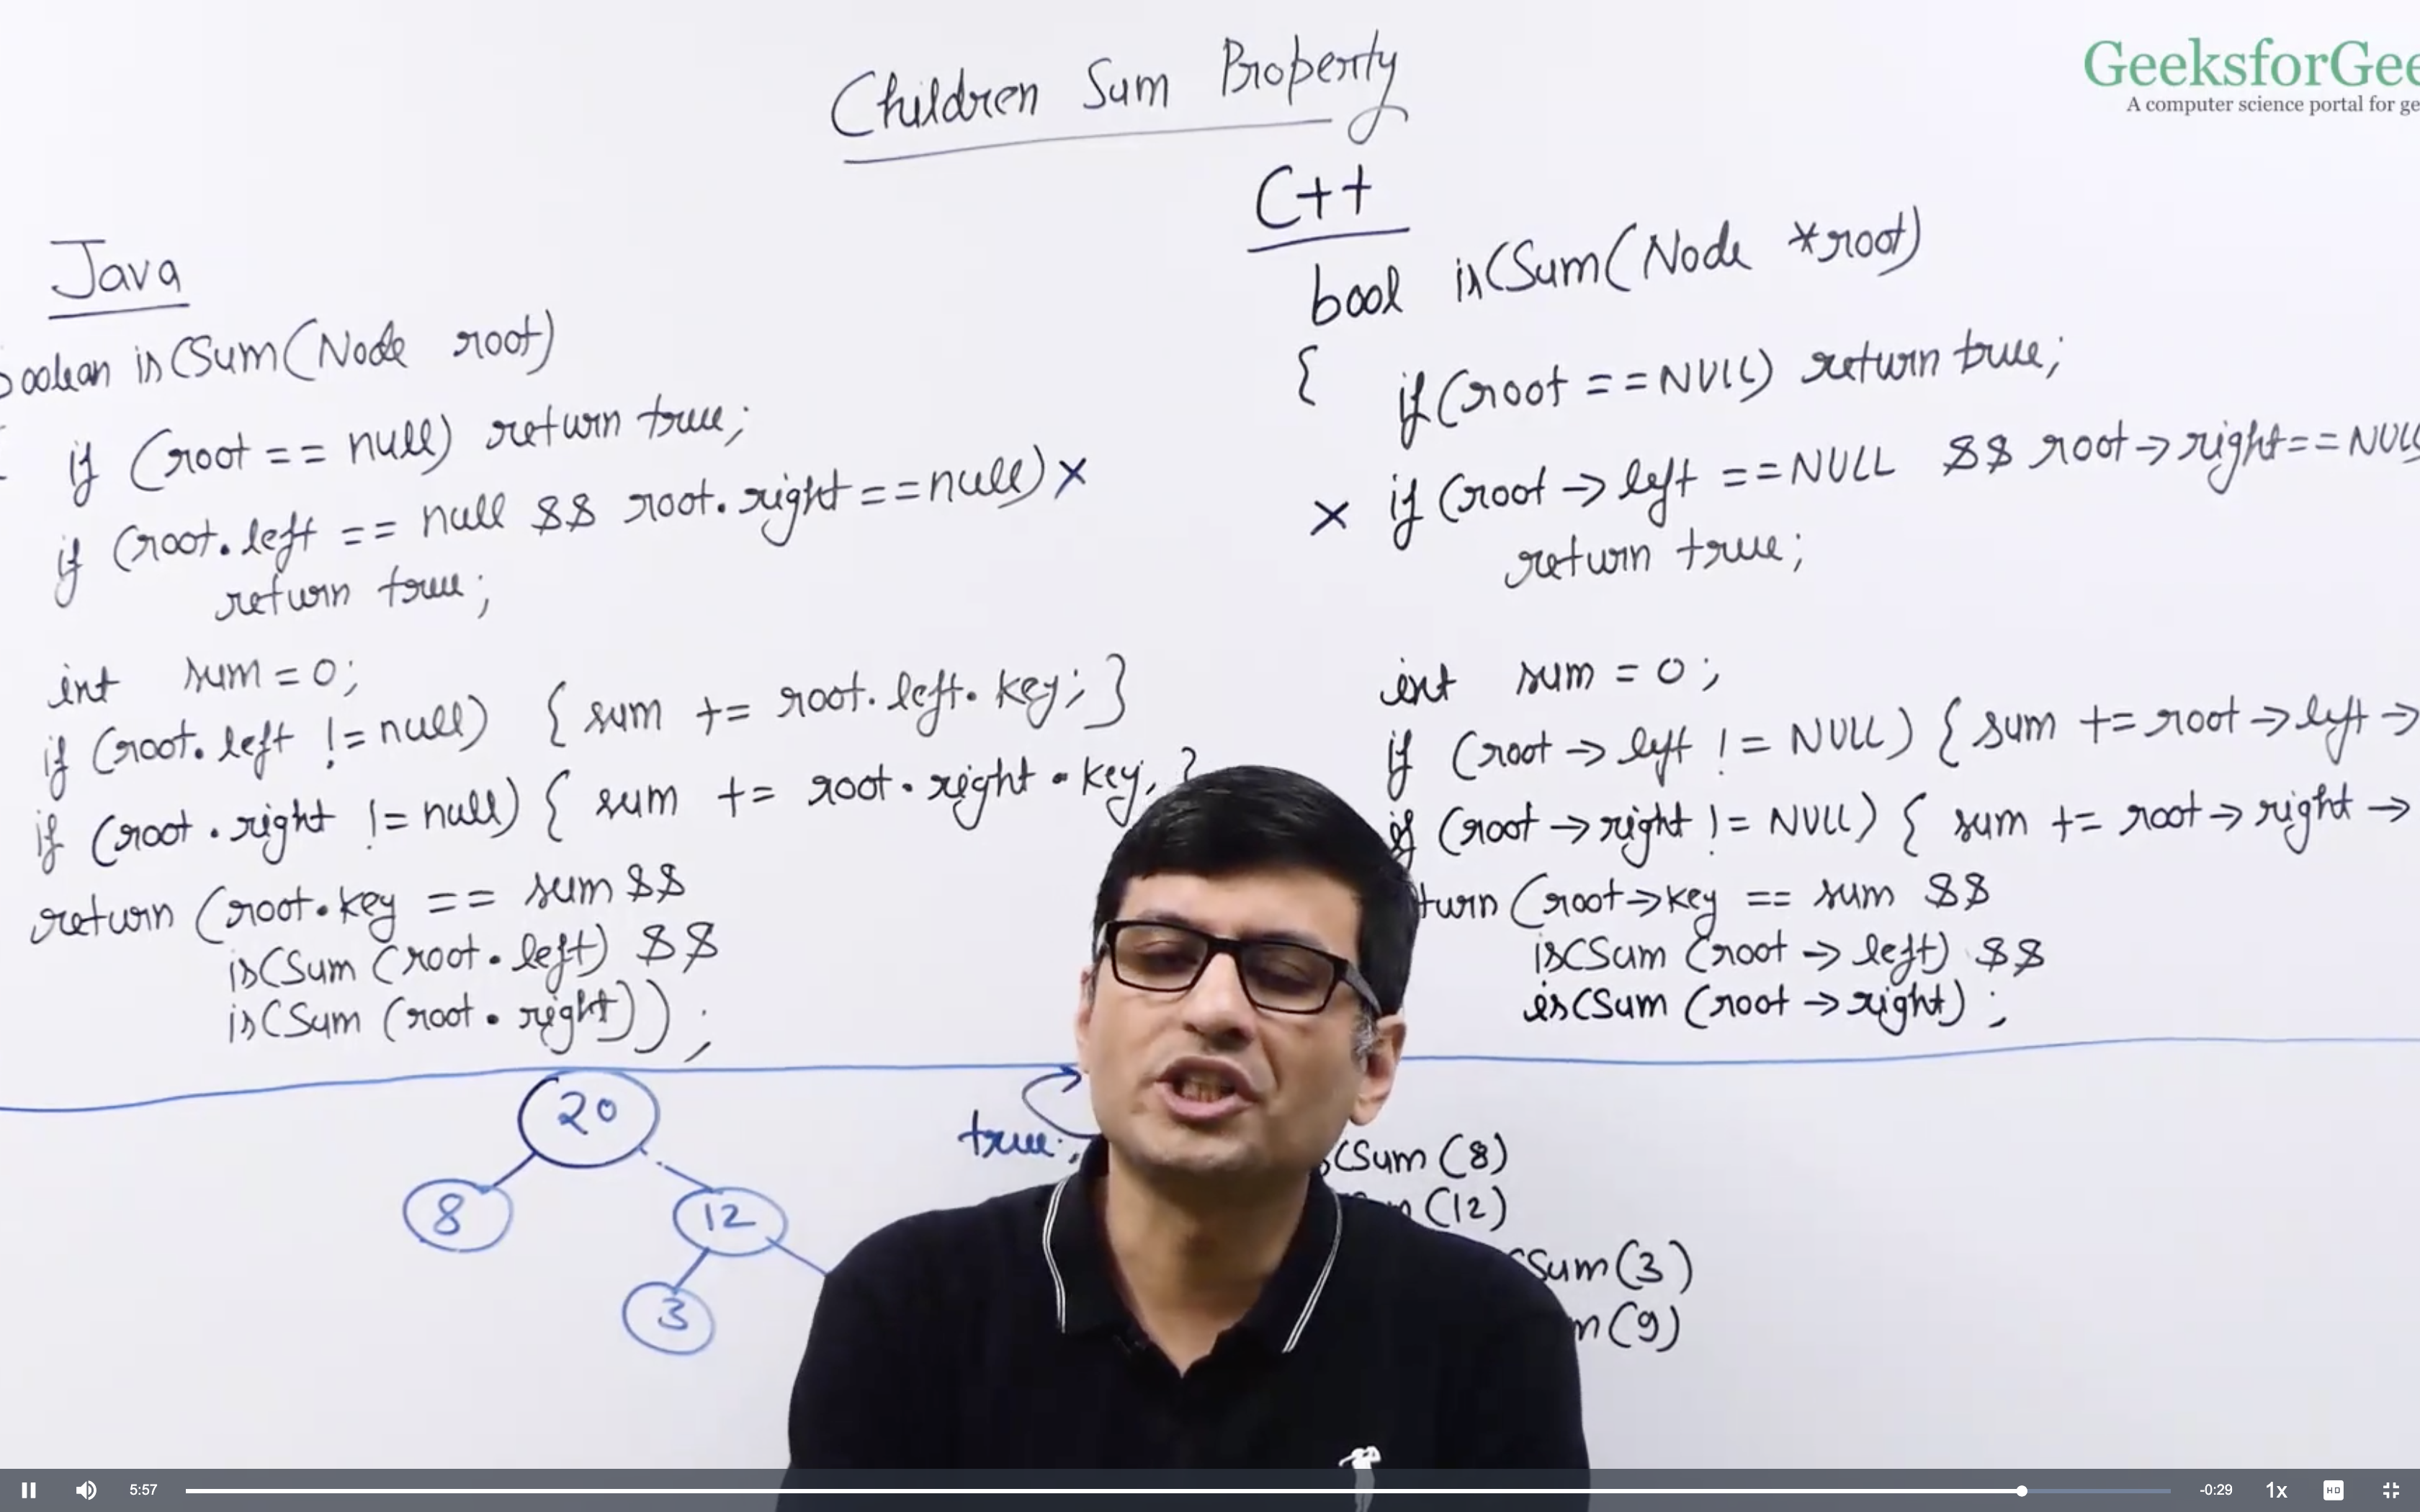 Children Sum Property
GeeksforGee
A computer science portal for ge
Java
oolean isCSum(Node root)
if (root == null) return true;
if (root.left == null && root.right == null) ×
return true;
int sum = 0;
if (root.left != null) { sum += root.left.key; }
if (root.right != null) { sum += root.right.key; }
return (root.key == sum &&
isCSum (root.left) &&
isCSum (root.right));
C++
bool isCSum(Node *root)
{ if (root == NULL) return true;
× if (root -> left == NULL && root -> right == NULL
return true;
int sum = 0;
if (root -> left != NULL) { sum += root -> left ->
if (root -> right != NULL) { sum += root -> right ->
turn (root -> key == sum &&
isCSum (root -> left) &&
isCSum (root -> right) ;
20
8
12
3
true;
CSum (8)
(12)
CSum (3)
m (9)
5:57
-0:29
1x
HD